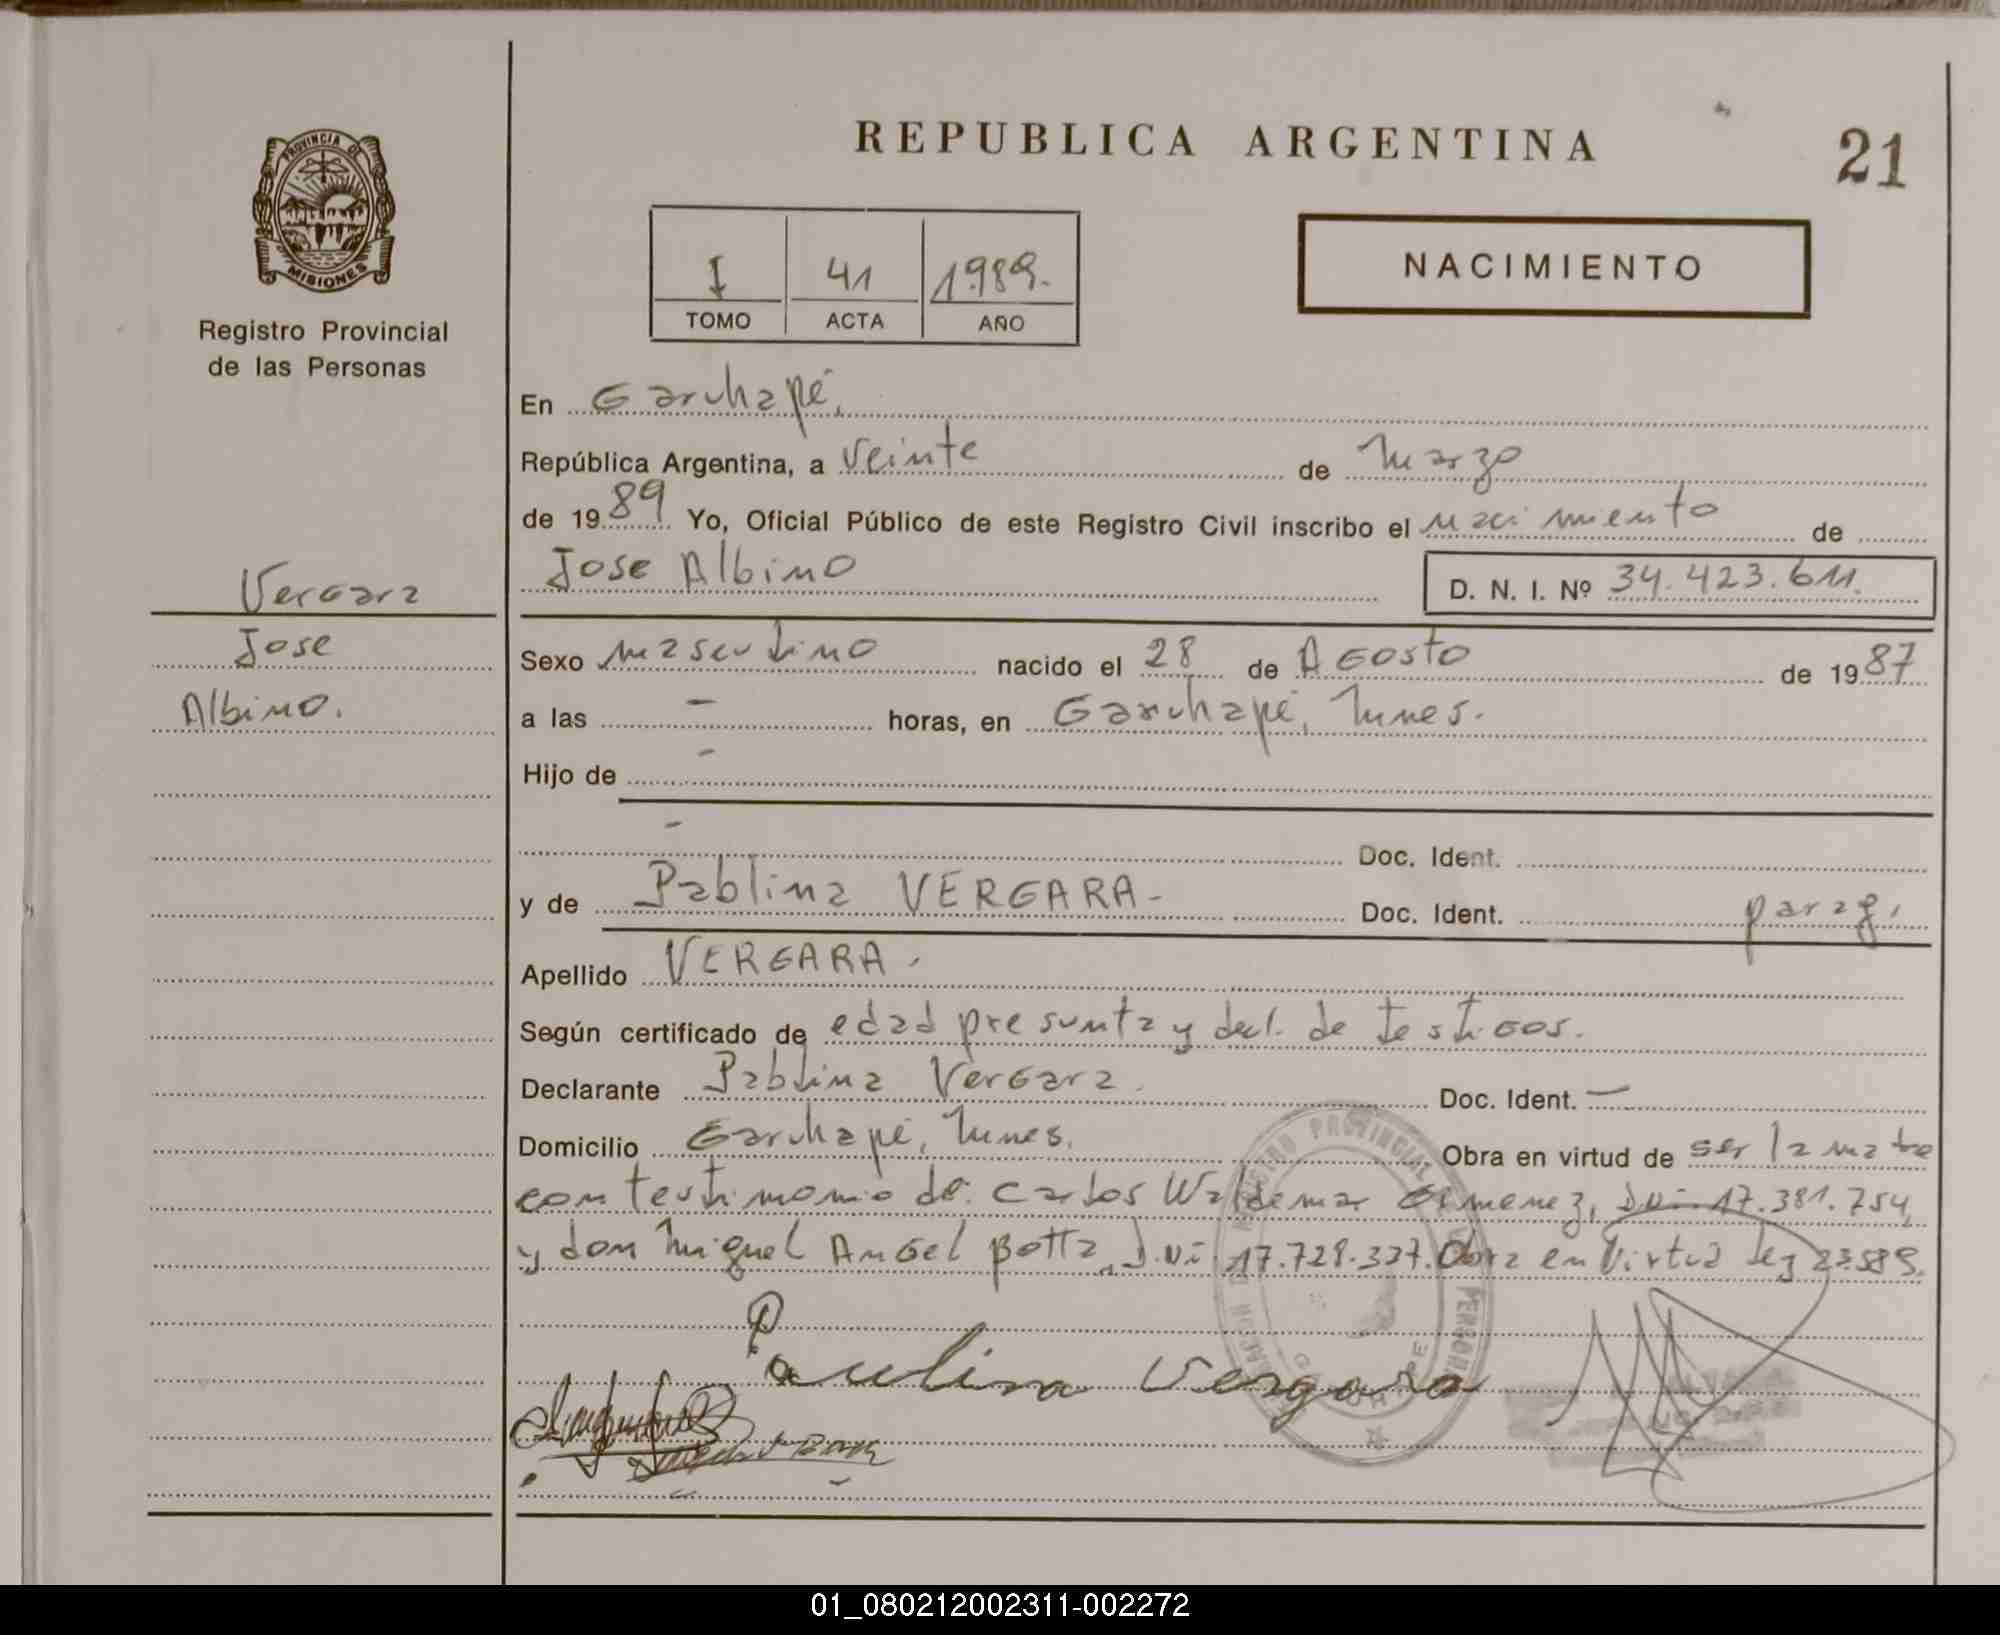 REPUBLICA ARGENTINA
21
PROVINCIA DE
MISIONES
Registro Provincial
de las Personas
I 41 1989.
TOMO ACTA AÑO
NACIMIENTO
En Garuhapé,
República Argentina, a Veinte de Marzo
de 1989 Yo, Oficial Público de este Registro Civil inscribo el nacimiento de
Jose Albino D. N. I. Nº 34.423.611.
Vergara
Jose
Albino.
Sexo masculino nacido el 28 de Agosto de 1987
a las - horas, en Garuhapé, Mnes.
Hijo de -
- Doc. Ident.
y de Pablina VERGARA- Doc. Ident. parag.
Apellido VERGARA.
Según certificado de edad presunta y decl. de testigos.
Declarante Pablina Vergara. Doc. Ident. —
Domicilio Garuhapé, Mnes. Obra en virtud de ser la madre
con testimonio de: Carlos Waldemar Gimenez, D.N.i. 17.381.754,
y don Miguel Angel Botta, D.Ni. 17.728.337. Obra en Virtud Ley 23.589.
Paulina Vergara
REGISTRO PROVINCIAL DE
GARUHAPE
01_080212002311-002272